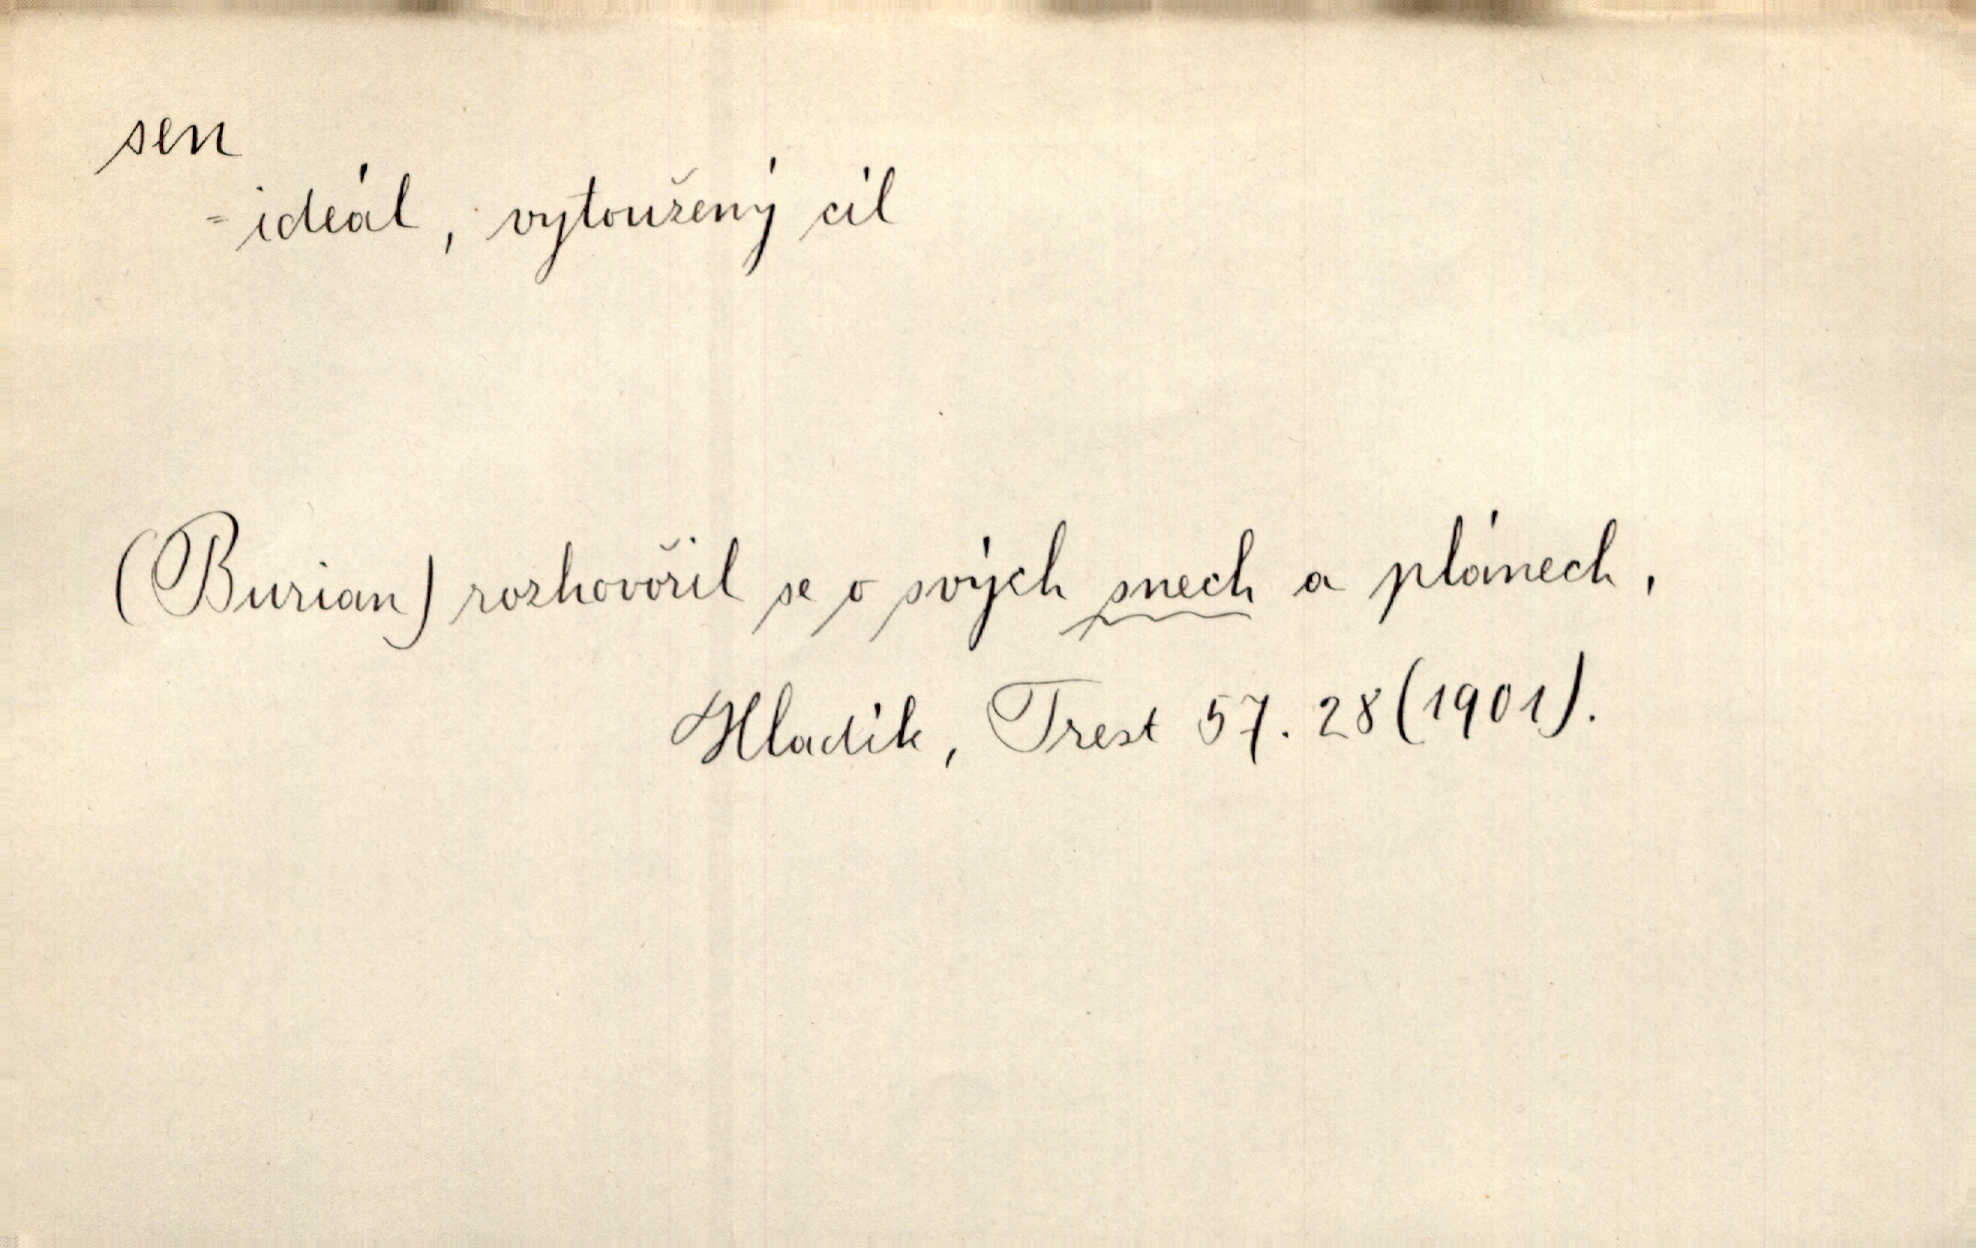 sen
= ideál, vytoužený cíl
(Burian) rozhovořil se o svých snech a plánech,
Hladík, Trest 57. 28 (1901).